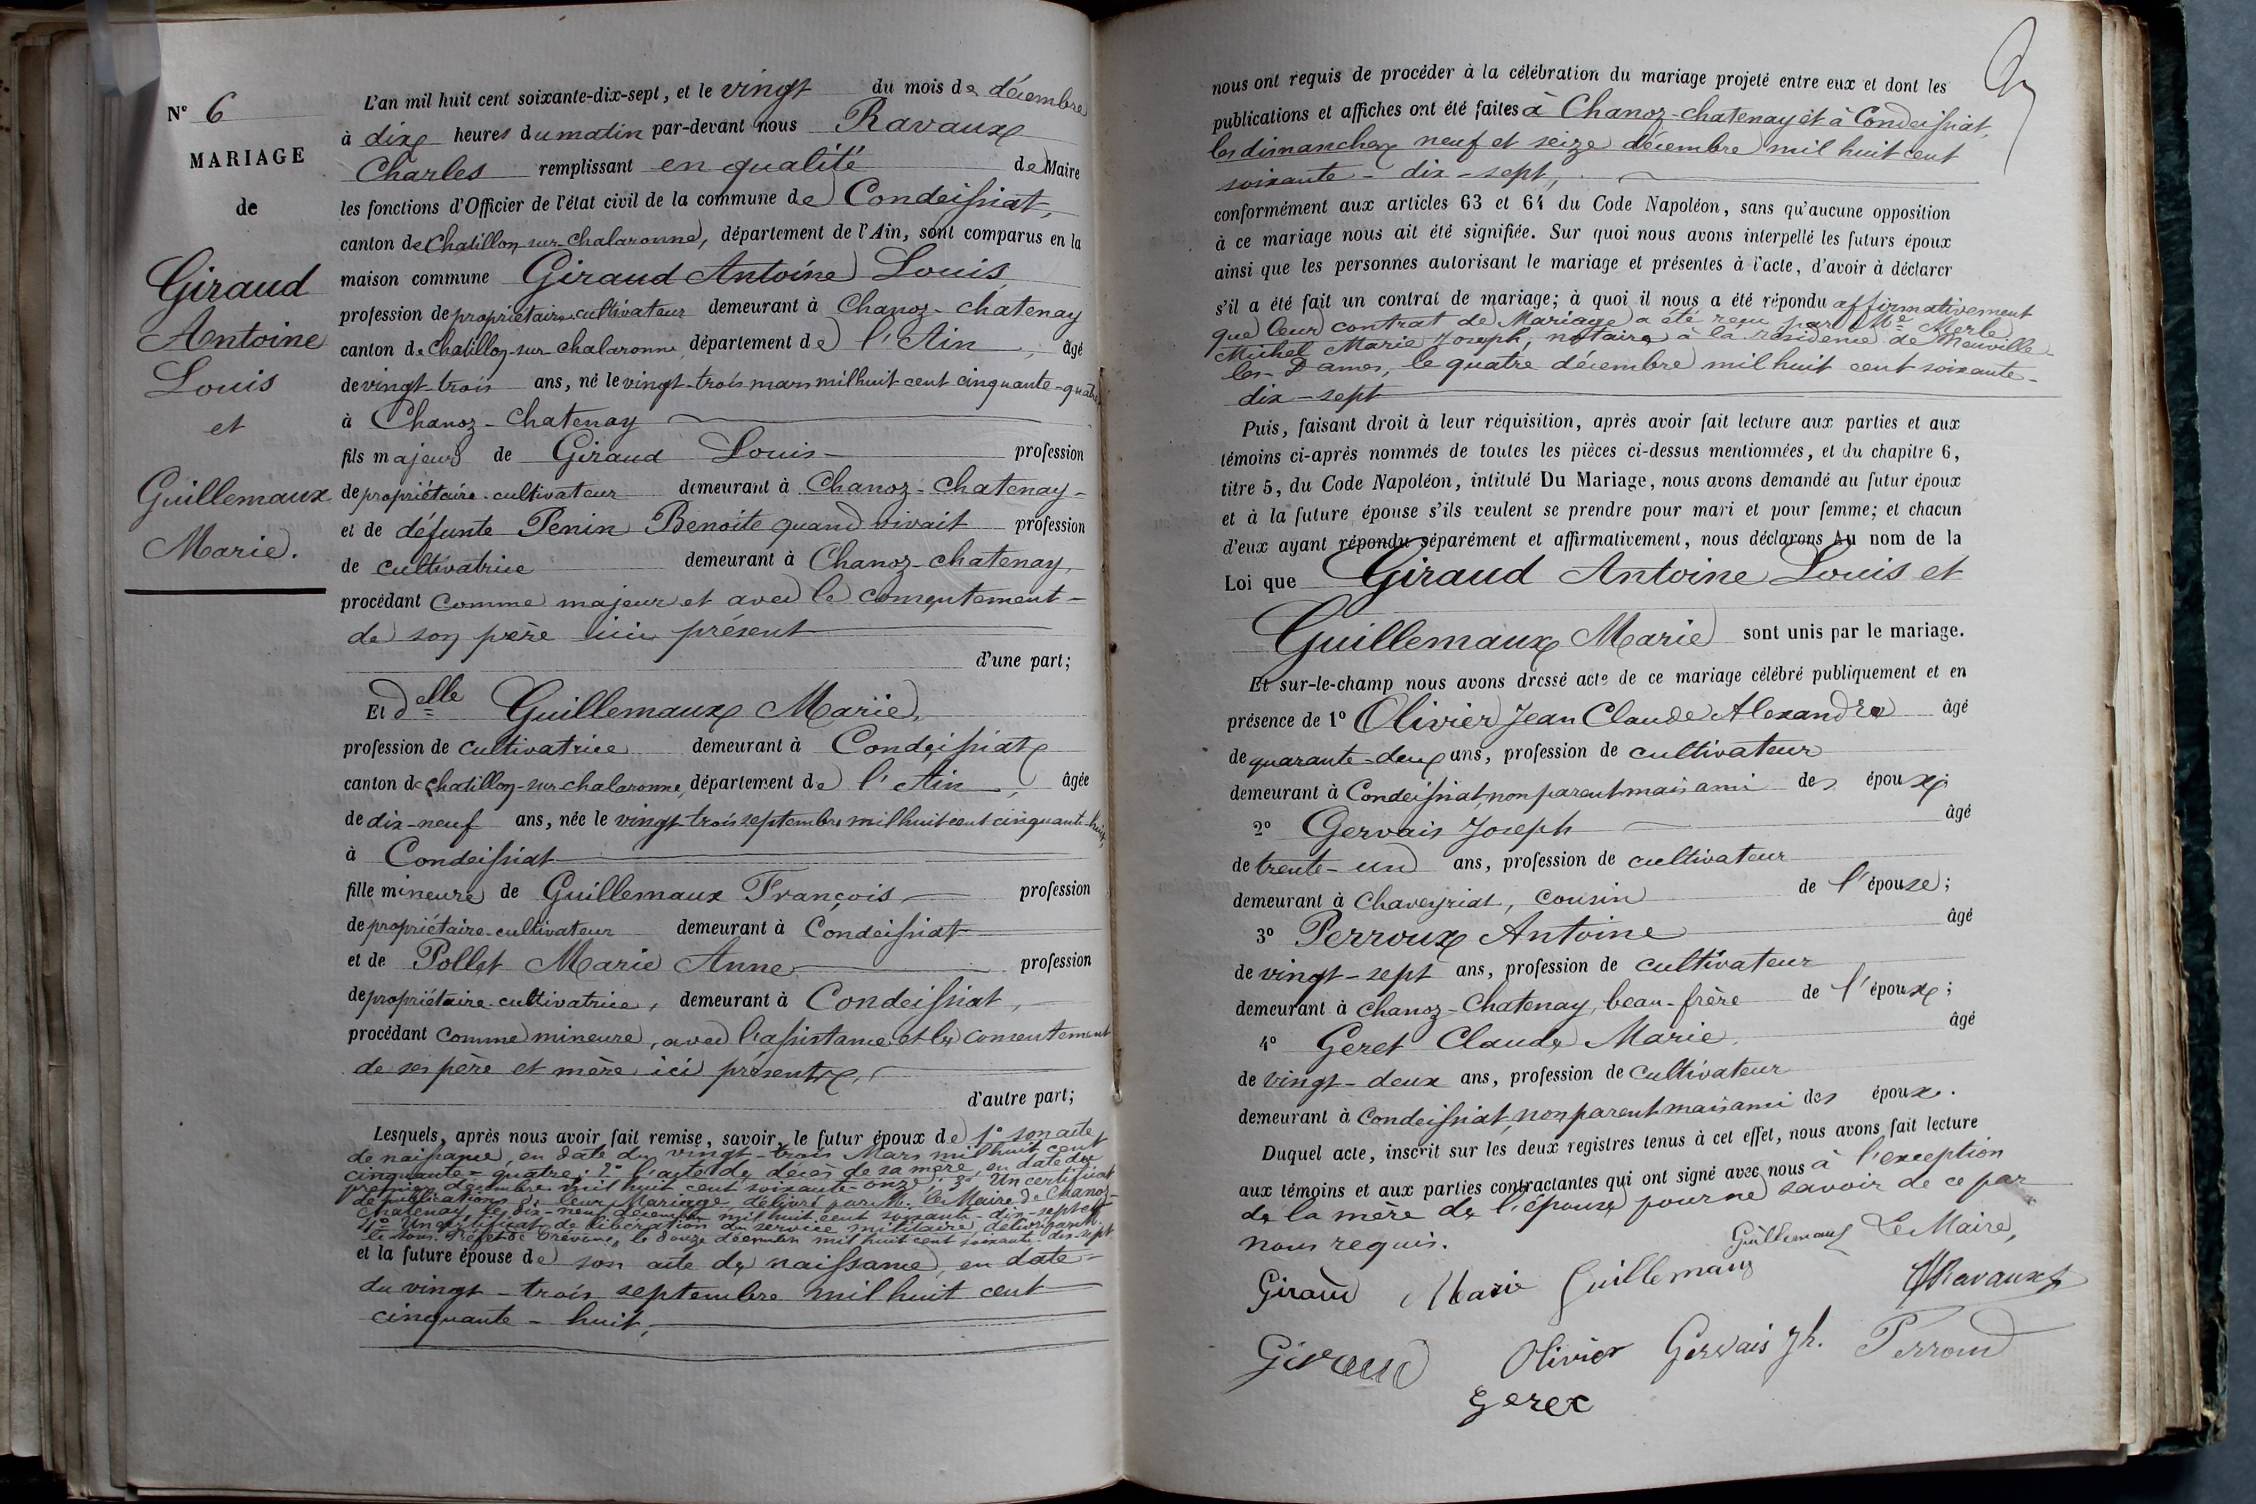 N° 6
MARIAGE
de
Giraud
Antoine
Louis
et
Guillemaux
Marie.
L'an mil huit cent soixante-dix-sept, et le vingt du mois de décembre
à dix heures du matin par-devant nous Ravaux
Charles remplissant en qualité de Maire
les fonctions d'Officier de l'état civil de la commune de Condeissiat,
canton de Chatillon-sur-Chalaronne, département de l'Ain, sont comparus en la
maison commune Giraud Antoine Louis
profession de propriétaire-cultivateur demeurant à Chanoz-Chatenay
canton de Chatillon-sur-Chalaronne, département de l'Ain, âgé
de vingt-trois ans, né le vingt-trois mars mil huit cent cinquante-quatre
à Chanoz-Chatenay
fils majeur de Giraud Louis profession
de propriétaire-cultivateur demeurant à Chanoz-Chatenay
et de défunte Penin Benoite quand vivait profession
de cultivatrice demeurant à Chanoz-chatenay,
procédant comme majeur et avec le consentement
de son père ici présent
d'une part;
Et Delle Guillemaux Marie,
profession de cultivatrice demeurant à Condeissiat
canton de Chatillon-sur-chalaronne, département de l'Ain, âgée
de dix-neuf ans, née le vingt-trois septembre mil huit cent cinquante-huit,
à Condeissiat
fille mineure de Guillemaux François, profession
de propriétaire-cultivateur demeurant à Condeissiat
et de Pollet Marie Anne profession
de propriétaire-cultivatrice, demeurant à Condeissiat,
procédant comme mineure, avec l'assistance et le consentement
de ses père et mère ici présents,
d'autre part;
Lesquels, après nous avoir fait remise, savoir, le futur époux de 1° son acte
de naissance, en date du vingt-trois Mars mil huit cent
cinquante-quatre; 2° l'acte de décès de sa mère, en date du
premier décembre mil huit cent soixante-onze; 3° Un certificat
de publications de leur Mariage, délivré par M. le Maire de Chanoz-
Chatenay le dix-neuf décembre mil huit cent soixante-dix-sept et
4° Un certificat de libération du service militaire délivré par M.
le sous-Préfet de Trévoux, le douze décembre mil huit cent soixante-dix-sept
et la future épouse de son acte de naissance, en date
du vingt-trois septembre mil huit cent
cinquante-huit,
nous ont requis de procéder à la célébration du mariage projeté entre eux et dont les
publications et affiches ont été faites à Chanoz-chatenay et à Condeissiat,
les dimanches neuf et seize décembre mil huit cent
soixante-dix-sept,
conformément aux articles 63 et 64 du Code Napoléon, sans qu'aucune opposition
à ce mariage nous ait été signifiée. Sur quoi nous avons interpellé les futurs époux
ainsi que les personnes autorisant le mariage et présentes à l'acte, d'avoir à déclarer
s'il a été fait un contrat de mariage; à quoi il nous a été répondu affirmativement
que leur contrat de Mariage a été reçu par Me Merle
Michel Marie Joseph, notaire à la résidence de Neuville-
les-Dames, le quatre décembre mil huit cent soixante-
dix-sept
Puis, faisant droit à leur réquisition, après avoir fait lecture aux parties et aux
témoins ci-après nommés de toutes les pièces ci-dessus mentionnées, et du chapitre 6,
titre 5, du Code Napoléon, intitulé Du Mariage, nous avons demandé au futur époux
et à la future épouse s'ils veulent se prendre pour mari et pour femme; et chacun
d'eux ayant répondu séparément et affirmativement, nous déclarons au nom de la
Loi que Giraud Antoine Louis et
Guillemaux Marie sont unis par le mariage.
Et sur-le-champ nous avons dressé acte de ce mariage célébré publiquement et en
présence de 1° Olivier Jean Claude Alexandre âgé
de quarante-deux ans, profession de cultivateur
demeurant à Condeissiat, non parent mais ami des époux;
2° Gervais Joseph âgé
de trente-un ans, profession de cultivateur
demeurant à Chaveyriat, cousin de l'épouse;
3° Perroux Antoine âgé
de vingt-sept ans, profession de cultivateur
demeurant à Chanoz-Chatenay, beau-frère de l'époux;
4° Geret Claude Marie, âgé
de vingt-deux ans, profession de cultivateur
demeurant à Condeissiat, non parent mais ami des époux.
Duquel acte, inscrit sur les deux registres tenus à cet effet, nous avons fait lecture
aux témoins et aux parties contractantes qui ont signé avec nous à l'exception
de la mère de l'épouse pour ne savoir de ce par
nous requis.
Guillemaux Le Maire,
Giraud Marie Guillemaux Ravaux
Giraud Olivier Gervais Jh. Perroud
Geret